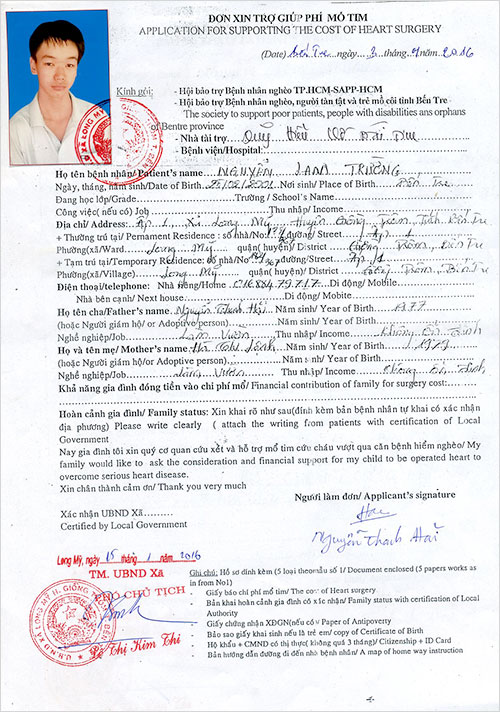 ĐƠN XIN TRỢ GIÚP PHÍ MỔ TIM
APPLICATION FOR SUPPORTING THE COST OF HEART SURGERY
(Date) Bến Tre ngày 3 tháng 1/2016
Kính gởi: - Hội bảo trợ Bệnh nhân nghèo TP.HCM-SAPP-HCM
- Hội bảo trợ Bệnh nhân nghèo, người tàn tật và trẻ mồ côi tỉnh Bến Tre
The society to support poor patients, people with disabilities ans orphans
of Bentre province
- Nhà tài trợ
- Bệnh viện/Hospital:
Họ tên bệnh nhân/ Patient's name NGUYỄN LAM TRƯỜNG
Ngày, tháng, năm sinh/Date of Birth 25/02/2001 Nơi sinh/ Place of Birth Bến Tre
Đang học lớp/Grade Trường / School's Name
Công việc( nếu có) Job Thu nhập/ Income
Địa chỉ/ Address: Ấp 1 Xã Long Mỹ Huyện Giồng Trôm, Tỉnh Bến Tre
+ Thường trú tại/ Pemament Residence : số nhà/No đường/Street Ấp 1
Phường(xã)/Ward Long Mỹ quận( huyện)/ District Giồng Trôm, Bến Tre
+ Tạm trú tại/Temporary Residence: số nhà/No đường/Street: Ấp 1
Phường(xã/Village) Long Mỹ quận( huyện)/ District Giồng Trôm, Bến Tre
Điện thoại/telephone: Nhà riêng/Home Di động/ Mobile
Nhà bên cạnh/ Next house Di động/ Mobile
Họ tên cha/Father's name Nguyễn Thanh Hải Năm sinh/ Year of Birth 1977
(hoặc Người giám hộ/ or Adoptive person) Năm sinh/ Year of Birth
Nghề nghiệp/Job Làm Vườn Thu nhập/ Income Không Ổn Định
Họ và tên mẹ/ Mother's name Năm sinh/ Year of Birth 1979
(hoặc Người giám hộ/or Adoptive person) Năm sinh/ Year of Birth
Nghề nghiệp/job Làm Vườn Thu nhập/ Income Không Ổn Định
Khả năng gia đình đóng tiền vào chi phí mổ/ Financial contribution of family for surgery cost:
Hoàn cảnh gia đình/ Family status: Xin khai rõ như sau(đính kèm bản bệnh nhân tự khai có xác nhận
địa phương) Please write clearly ( attach the writing from patients with certification of Local
Government
Nay gia đình tôi xin quý cơ quan cứu xét và hỗ trợ mổ tim cứu cháu vượt qua căn bệnh hiểm nghèo/ My
family would like to ask the consideration and financial support for my child to be operated heart to
overcome serious heart disease.
Xin chân thành cảm ơn/ Thank you very much
Người làm đơn/ Applicant's signature
Xác nhận UBND Xã
Certified by Local Government
Hải
Nguyễn Thanh Hải
Long Mỹ, ngày 15 tháng 1 năm 2016
TM. UBND Xã
PHÓ CHỦ TỊCH
Lê Thị Kim Thi
Ghi chú: Hồ sơ đính kèm (5 loại theo mẫu số 1/ Document enclosed (5 papers works as
in from No1)
- Giấy báo chi phí mổ tim/ The cost of Heart surgery
- Bản khai hoàn cảnh gia đình có xác nhận/ Family status with certification of Local
Authority
- Giấy chứng nhận XĐGN(nếu có)/ Paper of Antipoverty
- Bảo sao giấy khai sinh nếu là trẻ em/ copy of Certificate of Birth
- Hộ khẩu + CMND có thị thực( không quá 3 tháng)/ Citizenship + ID Card
- Bản hướng dẫn đường đi đến nhà bệnh nhân/ A map of home way instruction